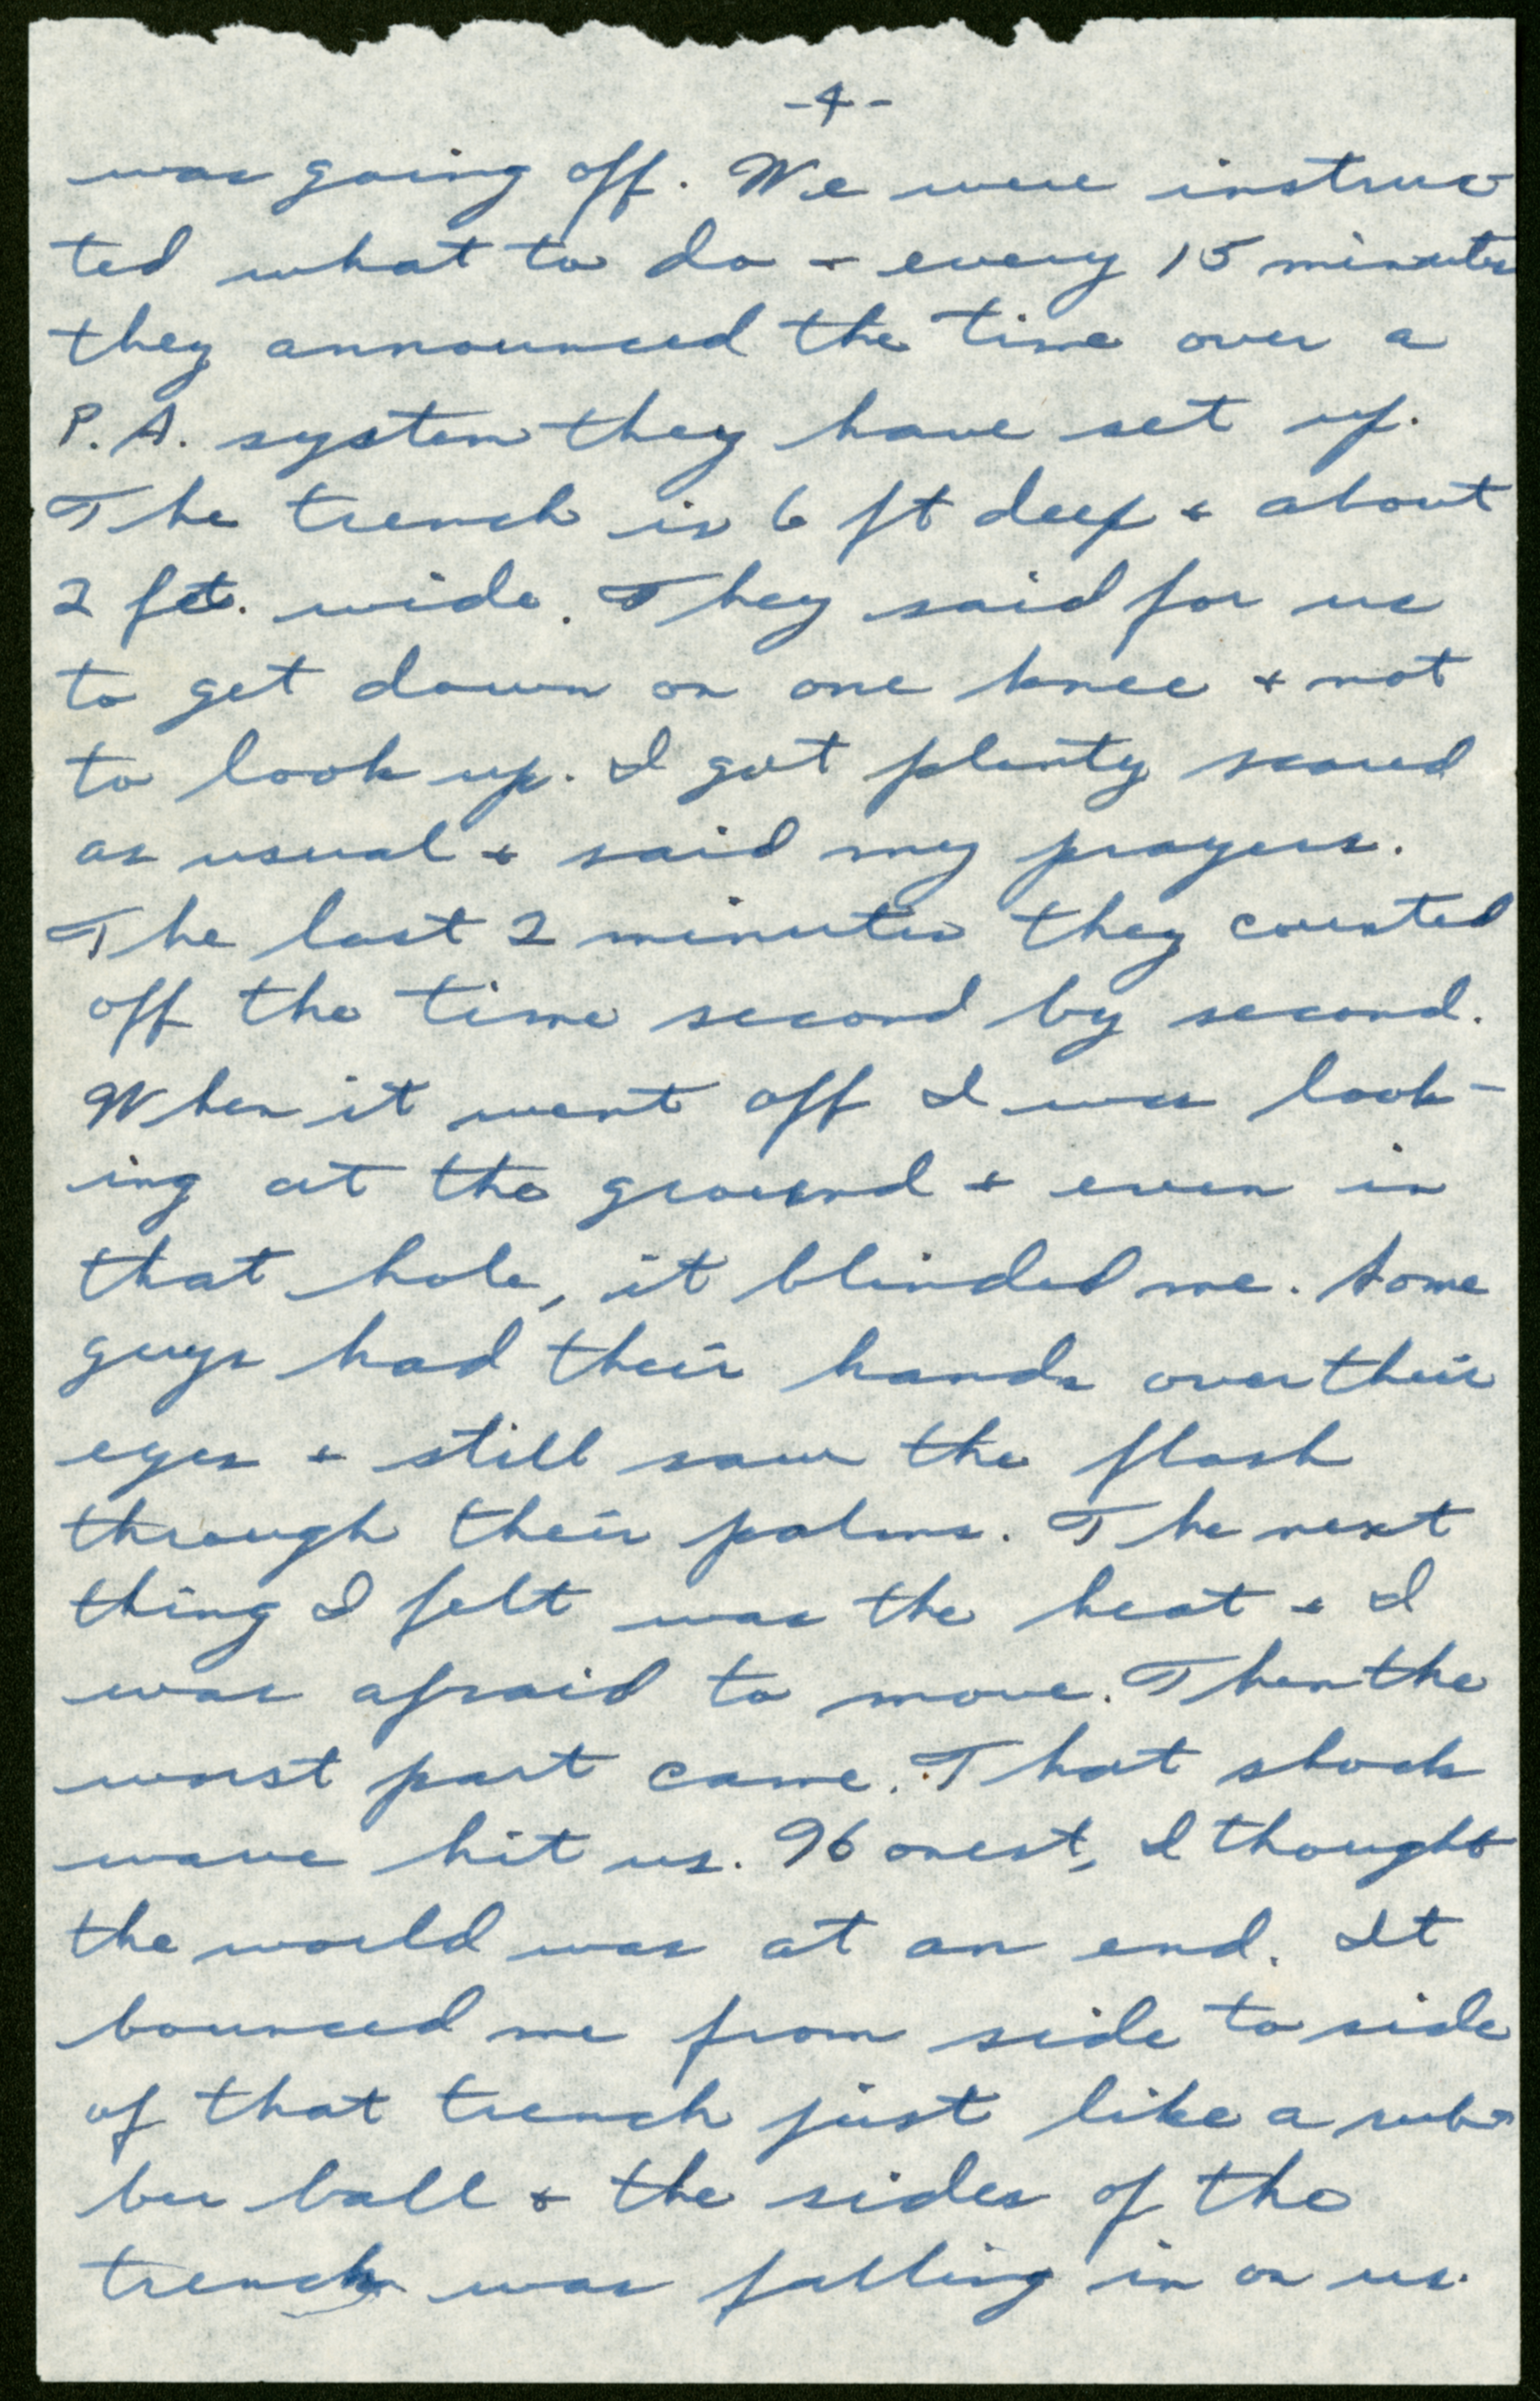 -4-
was going off. We were instruc-
ted what to do + every 15 minutes
they announced the time over a
P.A. system they have set up.
The trench is 6 ft deep + about
2 fet. wide. They said for us
to get down on one knee + not
to look up. I got plenty scared
as usual + said my prayers.
The last 2 minutes they counted
off the time second by second.
When it went off I was look-
ing at the ground + even in
that hole, it blinded me. Some
guys had their hands over their
eyes + still saw the flash
through their palms. The next
thing I felt was the heat + I
was afraid to move. Then the
worst part came. That shock
wave hit us. Honest, I thought
the world was at an end. It
bounced me from side to side
of that trench just like a rub-
ber ball + the sides of the
trench was falling in on us.